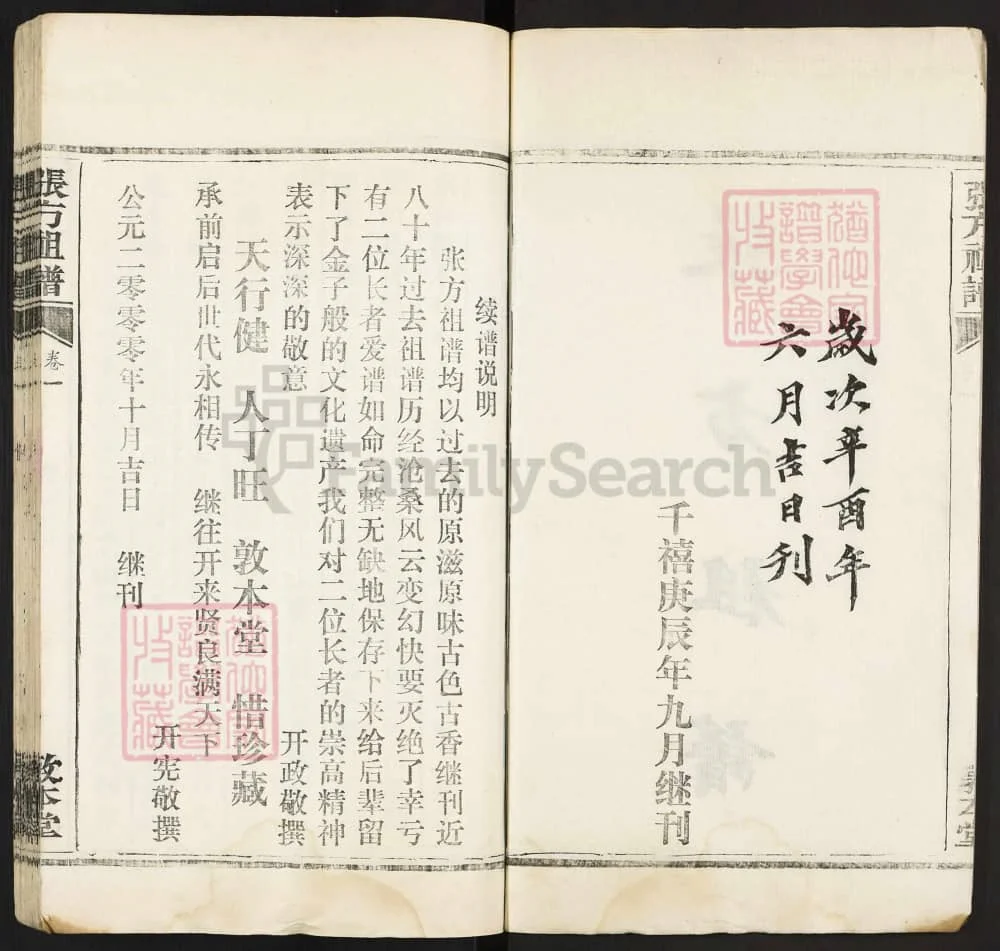 歲次辛酉年
六月吉日刊
千禧庚辰年九月继刊
续谱说明
张方祖谱均以过去的原滋原味古色古香继刊近
八十年过去祖谱历经沧桑风云变幻快要灭绝了幸亏
有二位长者爱谱如命完整无缺地保存下来给后辈留
下了金子般的文化遗产我们对二位长者的崇高精神
表示深深的敬意 开政敬撰
天行健 人丁旺 敦本堂 惜珍藏
承前启后世代永相传 继往开来贤良满天下
开宪敬撰
公元二零零零年十月吉日 继刊
張方祖譜
卷一
敦本堂
FamilySearch